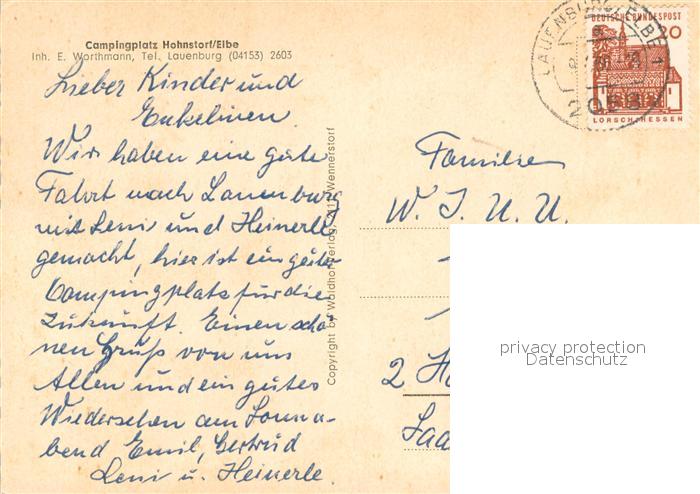 Campingplatz Hohnstorf/Elbe
Inh. E. Worthmann, Tel. Lauenburg (04153) 2603
Lieber Kinder und
Enkelinen.
Wir haben eine gute
Fahrt nach Lauenburg
mit Leni und Heinerle
gemacht, hier ist ein guter
Campingplatz für die
Zukunft. Einen schö-
nen Gruß von uns
Allen und ein gutes
Wiedersehen am Sonna-
bend Emil, Gertrud
Leni u. Heinerle.
Copyright by Waldhornverlag, 211 Wennerstorf
DEUTSCHE BUNDESPOST
20
LORSCH/HESSEN
LAUENBURG/ELBE 1
2058
Familien
W. J. U. U.
2 H
Saa
privacy protection
Datenschutz